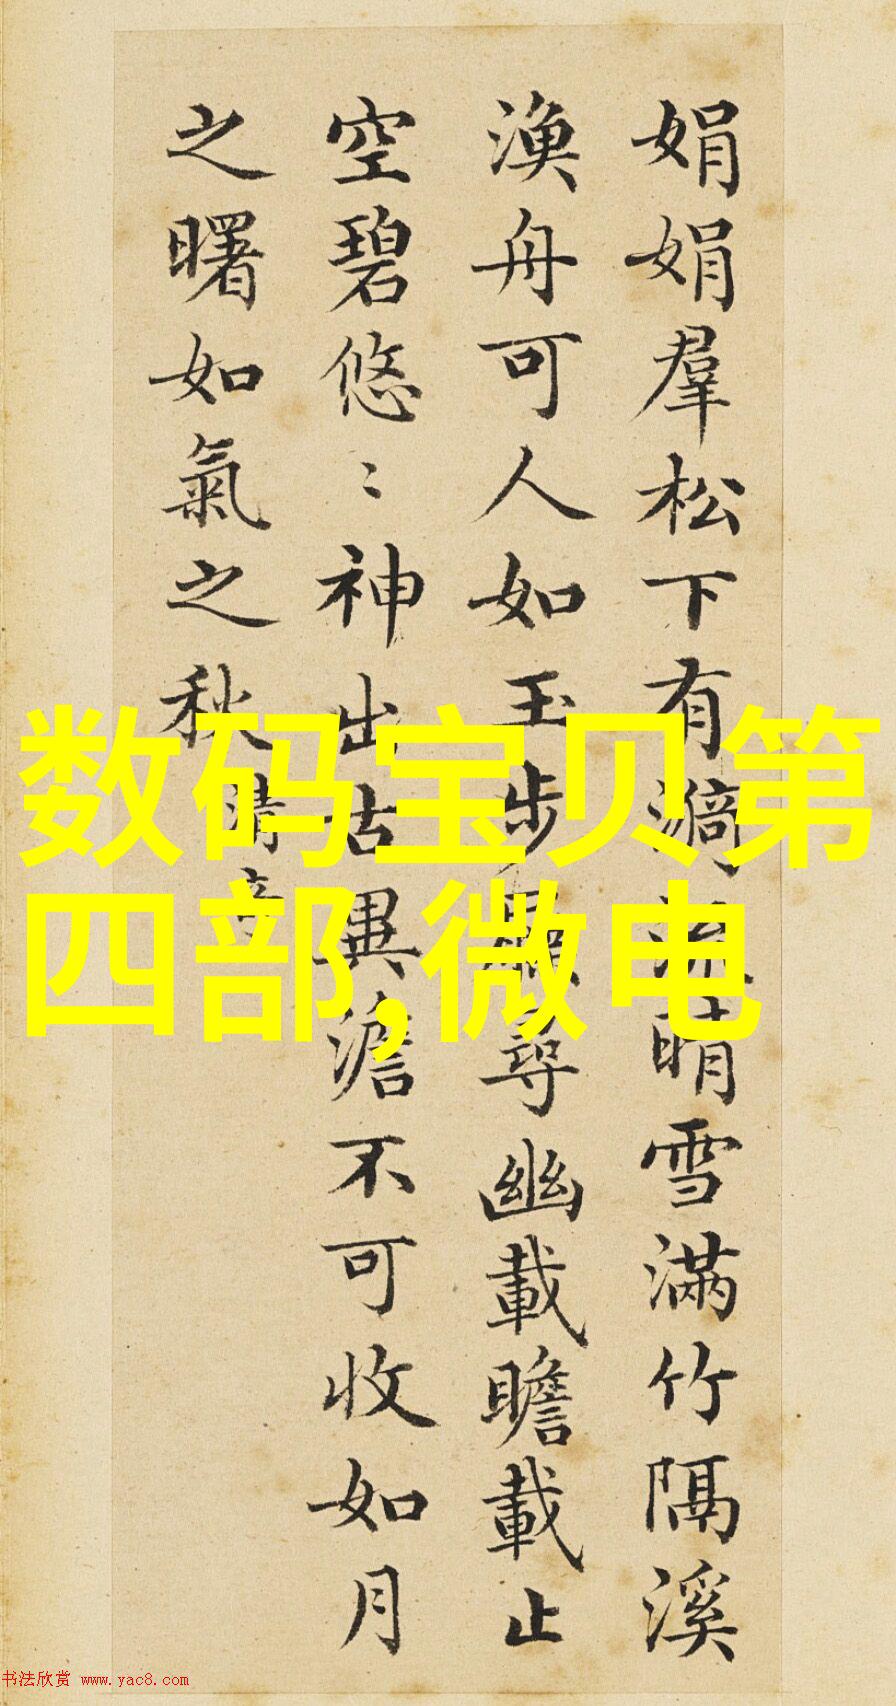 娟娟羣松下有漪流晴雪滿竹隔溪
漁舟可人如玉步屧尋幽載瞻載止
空碧悠〻神出古異澹不可收如月
之曙如氣之秋
清奇
数码宝贝第
四部,微电
书法欣赏 www.yac8.com